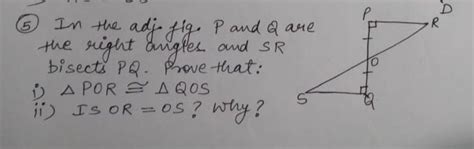 ⑤ In the adj. fig. P and Q are
the right angles and SR
bisects PQ. Prove that:
i) △ POR ≅ △ QOS
ii) Is OR = OS? Why?
P
R
D
O
S
Q